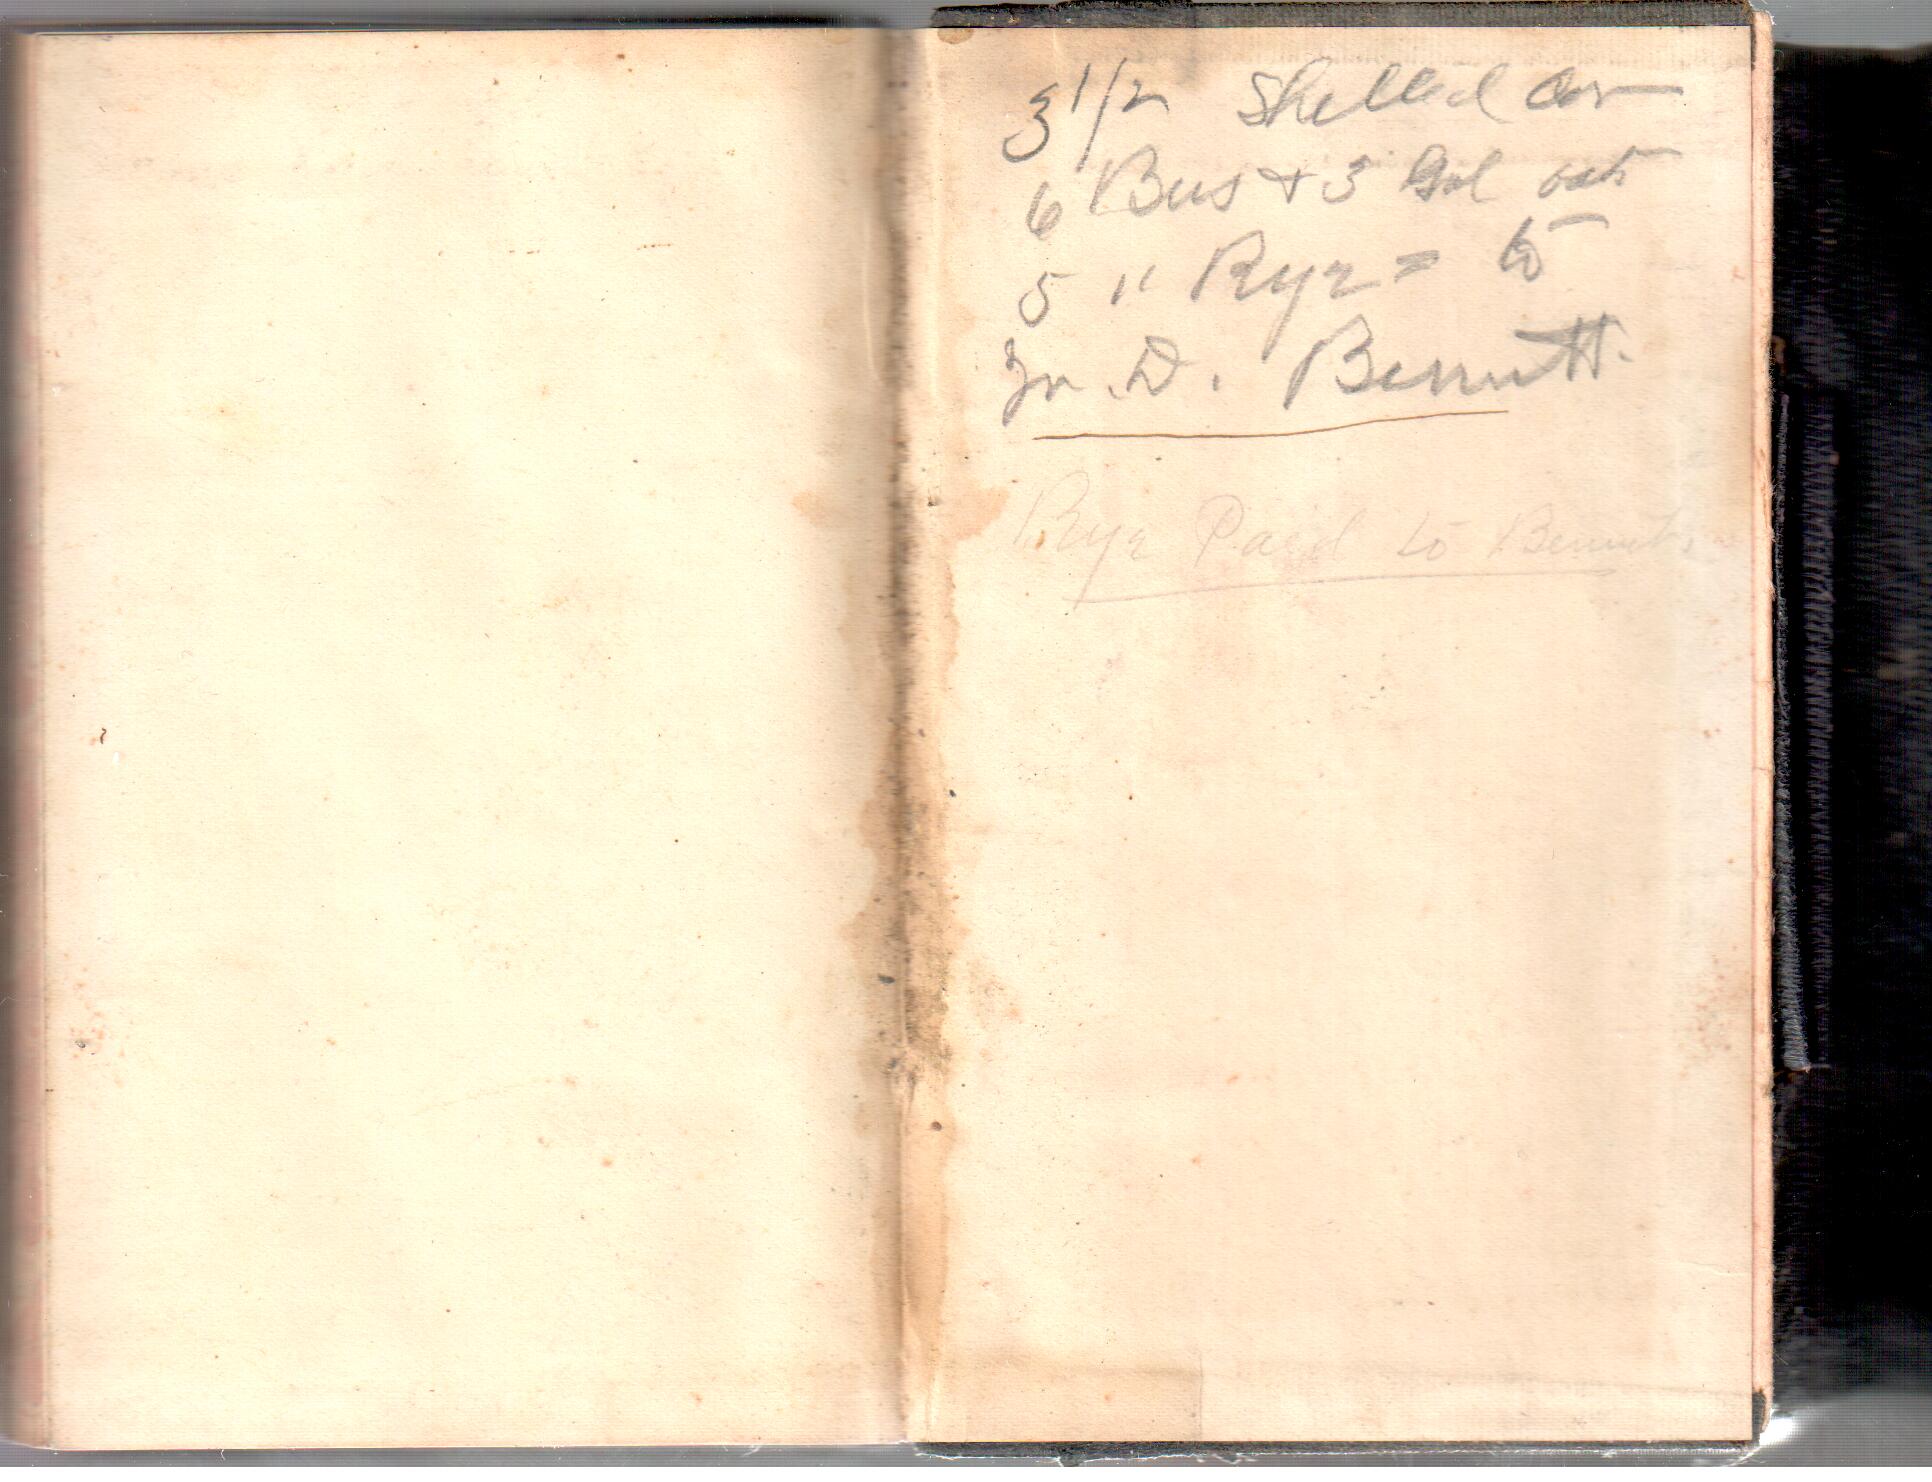 3 1/2 Shelled Cor
6 Bus + 3 Gal oats
5 " Rye = to
D. Bennett.
Rye Paid to Bennett